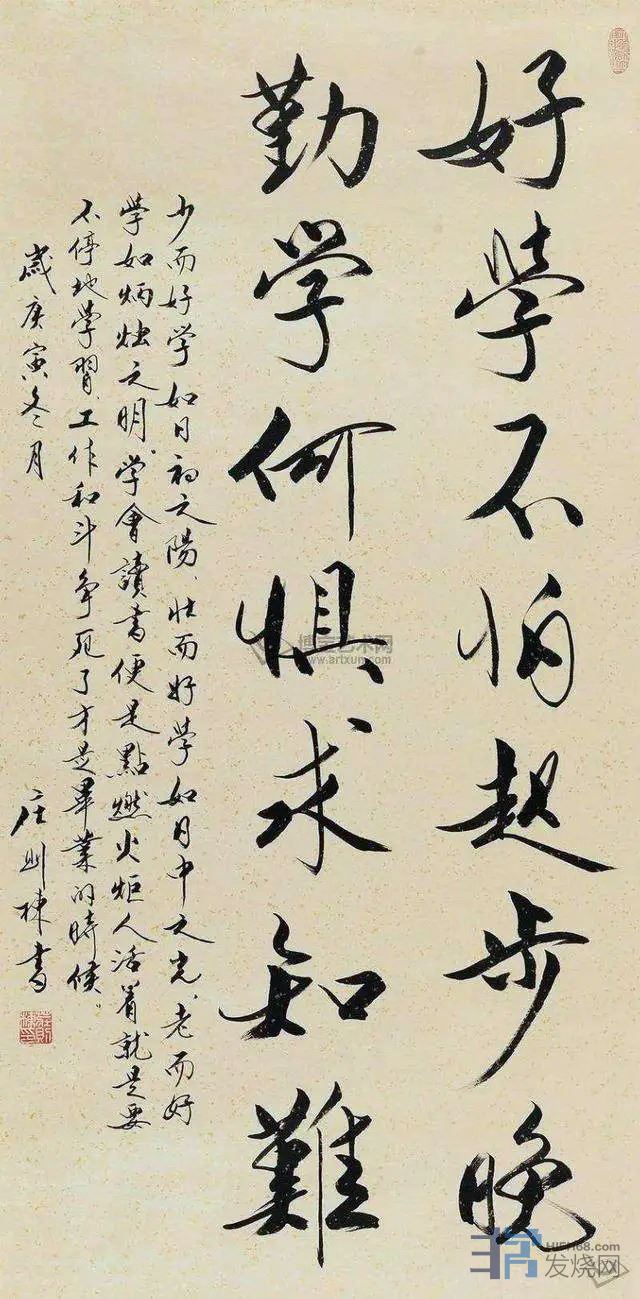 好學不怕起步晚
勤学何惧求知難
少而好学如日初之陽、壮而好学如月中之光、老而好
学如炳烛之明。学會讀書便是點燃火炬人活着就是要
不停地学習、工作和斗争死了才是畢業的時候。
歲庚寅冬月
庄则棟書
博宝艺术网
www.artxun.com
HIFI168.com
发烧网